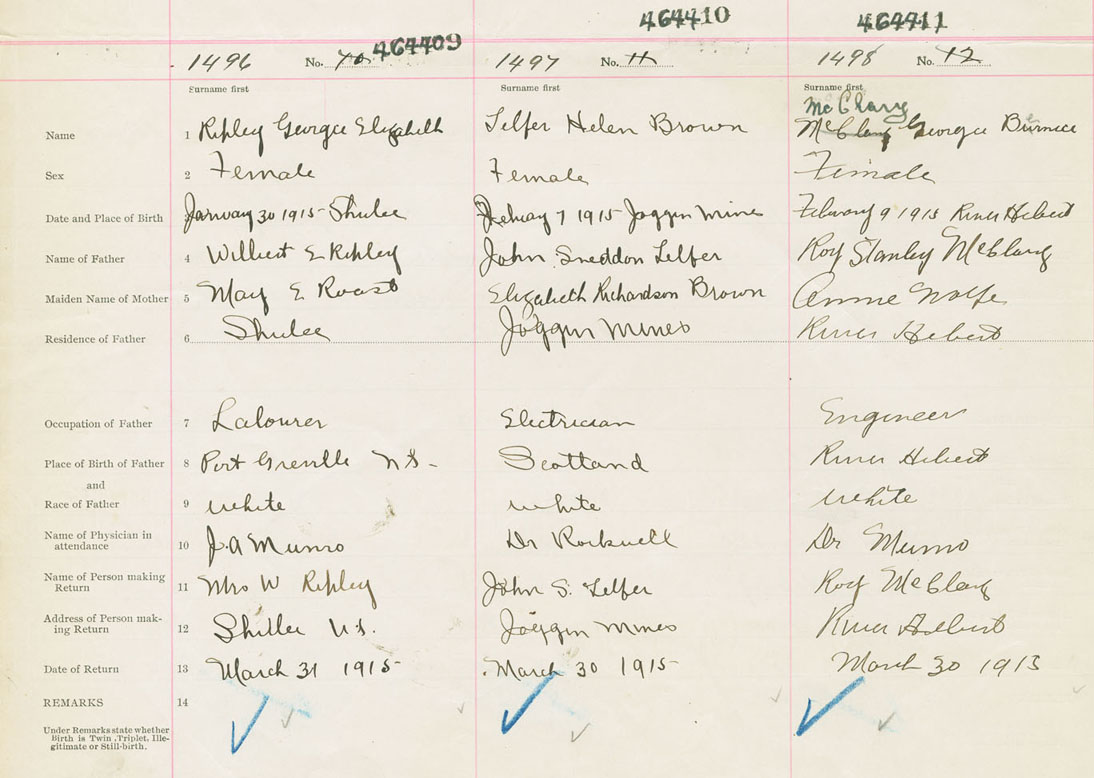 464409 464410 464411
1496 No. 10 1497 No. 11 1498 No. 12
Surname first Surname first Surname first
McClary
Name 1 Ripley Georgie Elizabeth Telfer Helen Brown McClary Georgie Burnice
Sex 2 Female Female Female
Date and Place of Birth 3 January 30 1915 Shulee Febuay 7 1915 Joggin Mines Febuary 9 1915 River Hebert
Name of Father 4 Wilbert E Ripley John Sneddon Telfer Roy Stanley McClary
Maiden Name of Mother 5 May E Roast Elizabeth Richardson Brown Annie Wolfe
Residence of Father 6 Shulee Joggin Mines River Hebert
Occupation of Father 7 Labourer Electrician Engineer
Place of Birth of Father 8 Port Greville N S - Scotland River Hebert
and
Race of Father 9 White White White
Name of Physician in attendance 10 J. A Munro Dr Rockwell Dr Munro
Name of Person making Return 11 Mrs W Ripley John S. Telfer Roy McClary
Address of Person mak-ing Return 12 Shulee N.S. Joggin Mines River Hebert
Date of Return 13 March 31 1915 March 30 1915 March 30 1915
REMARKS 14
Under Remarks state whether
Birth is Twin, Triplet, Ille-
gitimate or Still-birth.